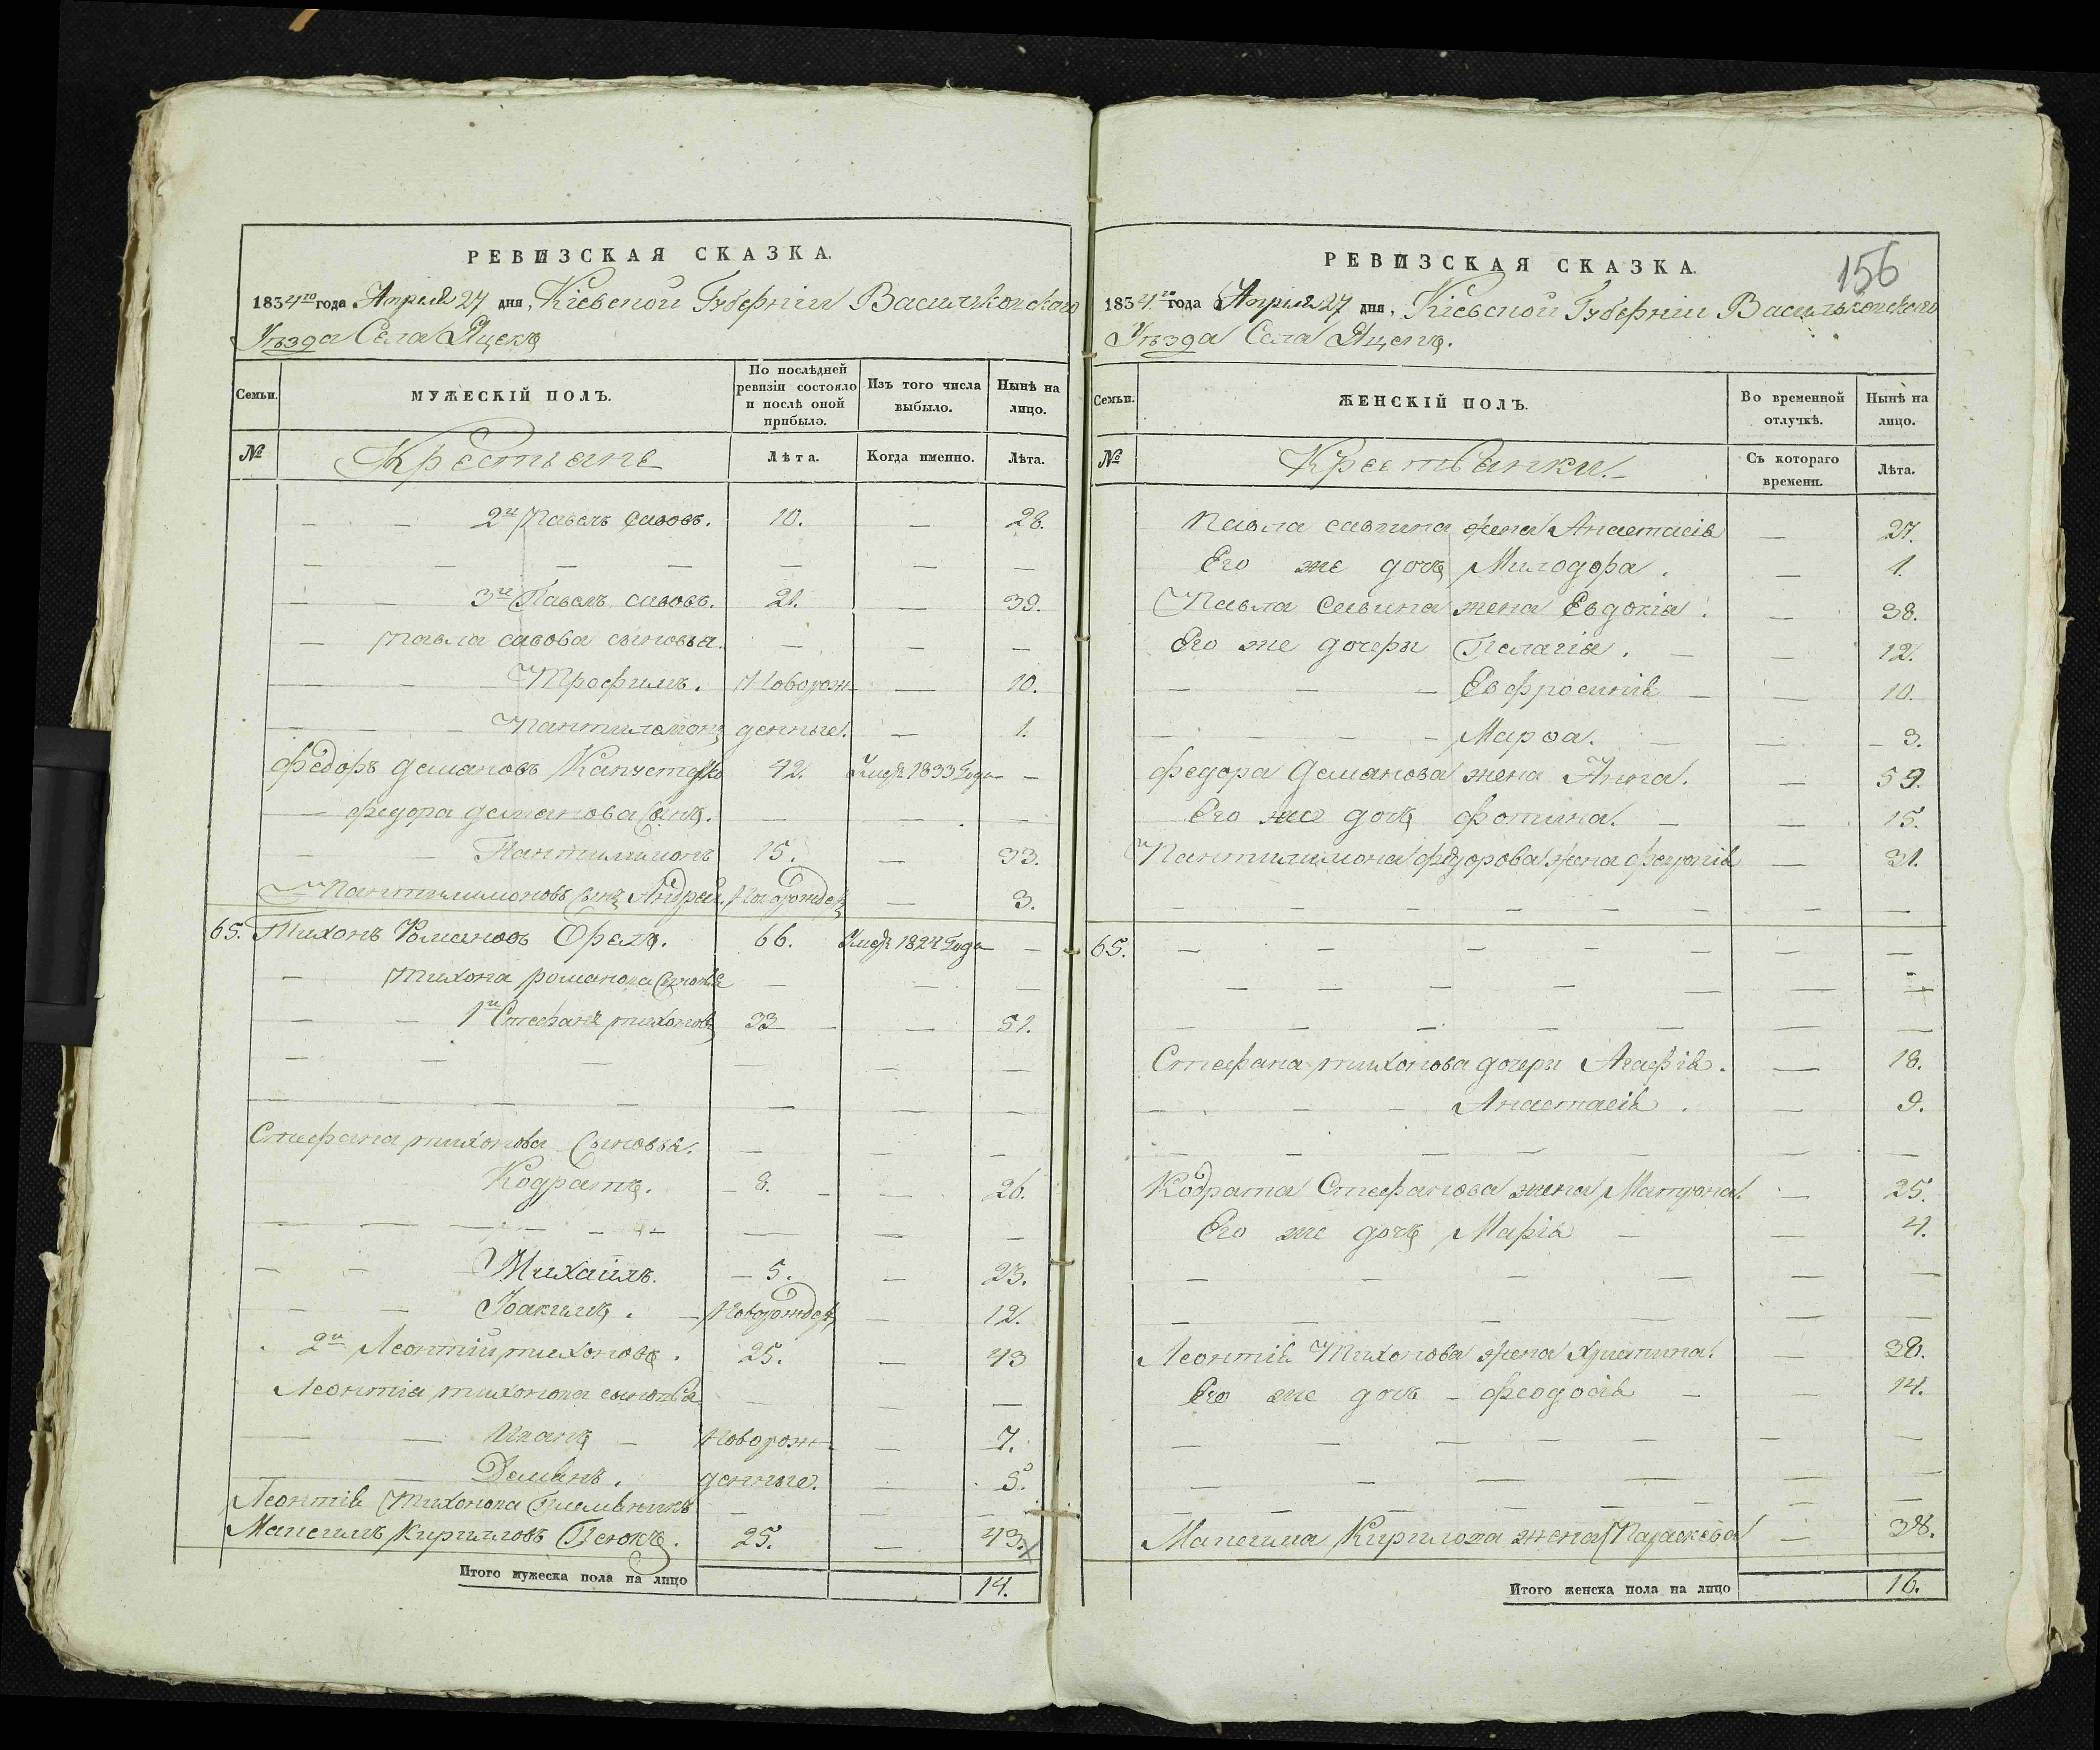 РЕВИЗСКАЯ СКАЗКА.
1834го года Апреля 27 дня, Кіевской Губерніи Васильковского
Уѣзда Села Яцекъ
Семьи.
МУЖЕСКІЙ ПОЛЪ.
По послѣдней ревизіи состояло и послѣ оной прибыло.
Изъ того числа выбыло.
Нынѣ на лицо.
№ Крестьяне Лѣта. Когда именно. Лѣта.
— — 2й Павелъ савовъ. 10. — 28.
— — — — — — —
— — 3й Павелъ савовъ. 21. — 39.
— Павла савова сыновья. — — —
— — — Трофимъ. Новорож — 10.
— — — Пантилимонъ денные. — 1.
Федоръ Демяновъ 42. Умеръ 1833 Года —
— федора демянова сынъ. — — —
— — Пантилимонъ 15. — 33.
— Пантилимоновъ сынъ Андрей. Новорожден — 3.
65. Тихонъ Романовъ Орелъ. 66. Умеръ 1824 Года —
— Тихона романова сыновья — — —
— — 1й Стефанъ тихоновъ 33 — — 51.
— — — — — —
— — — — — — —
Стефана тихонова Сыновья. — — —
Кодратъ. — 8. — — 26.
— — — — — — — — —
— — Михаилъ. — 5. — 23.
— — Іоакимъ. — Новорожден — 12.
2й Леонтій тихоновъ. 25. — 43
Леонтія тихонова сыновья — — —
— — Иванъ — Новорож — 7.
— Демянъ. денные. — 5.
Леонтія Тихонова Племянникъ — — —
Максимъ Кириловъ 25. — 43.
Итого мужеска пола на лицо 14.
156
РЕВИЗСКАЯ СКАЗКА.
1834го года Апреля 27 дня, Кіевской Губерніи Васильковского
Уѣзда Села Яцекъ.
Семьи.
ЖЕНСКІЙ ПОЛЪ.
Во временной отлучкѣ.
Нынѣ на лицо.
№ Крестьянки. Съ котораго времени. Лѣта.
Павла савина жена Анастасія — 27.
Его же дочь Милодора. — 1.
Павла Савина жена Евдокія. — 38.
Его же дочери Пелагія. — — 12.
— — — Евфросинія — — 10.
— — — — Марѳа. — — 3.
федора Демянова жена Анна. — 59.
Его же дочь фотина. — — 15.
Пантилимона федорова жена — 31.
— — — — — — — —
65. — — — — — — —
— — — — — — —
— — — — — — —
Стефана тихонова дочери Агафія. — 18.
— — — Анастасія. — 9.
— — — — — — —
Кодрата Стефанова жена Матрона. — 25.
Его же дочь Марія — — 4.
— — — — — —
— — — — — —
Леонтія Тихонова жена — 38.
Его же дочь — феодосія — — 14.
— — — — — — —
— — — — —
— — — — — —
Максима Кирилова жена Параскева — 38.
Итого женска пола на лицо 16.